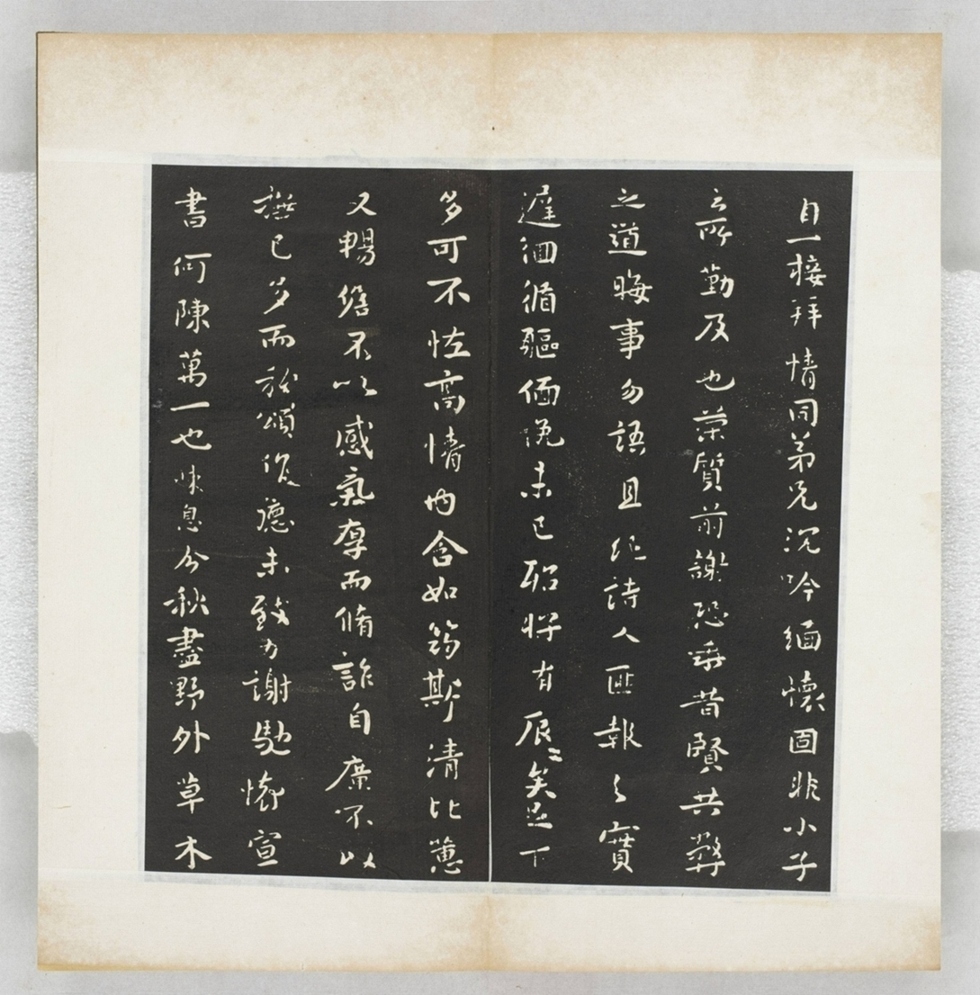 自一接拜情同弟兄沉吟緬懷固非小子
之所勤及也葉質前謝恐辱昔賢共弊
之道晦事勿語且作詩人匪報之實
遲徊循軀緬俛未已耶將有辰辰矣足下
多可不怪高情內含如筠斯清比蕙
又暢然不以感氣厚而脩詐自廉不以
已多而詠頌伐德未致力謝慰懷宣
書何陳萬一也悚息今秋盡野外草木